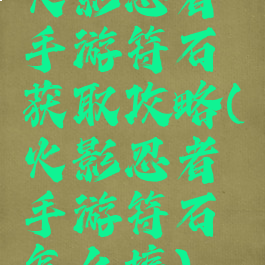 火影忍者
手游符石
获取攻略(
火影忍者
手游符石
怎么搞)